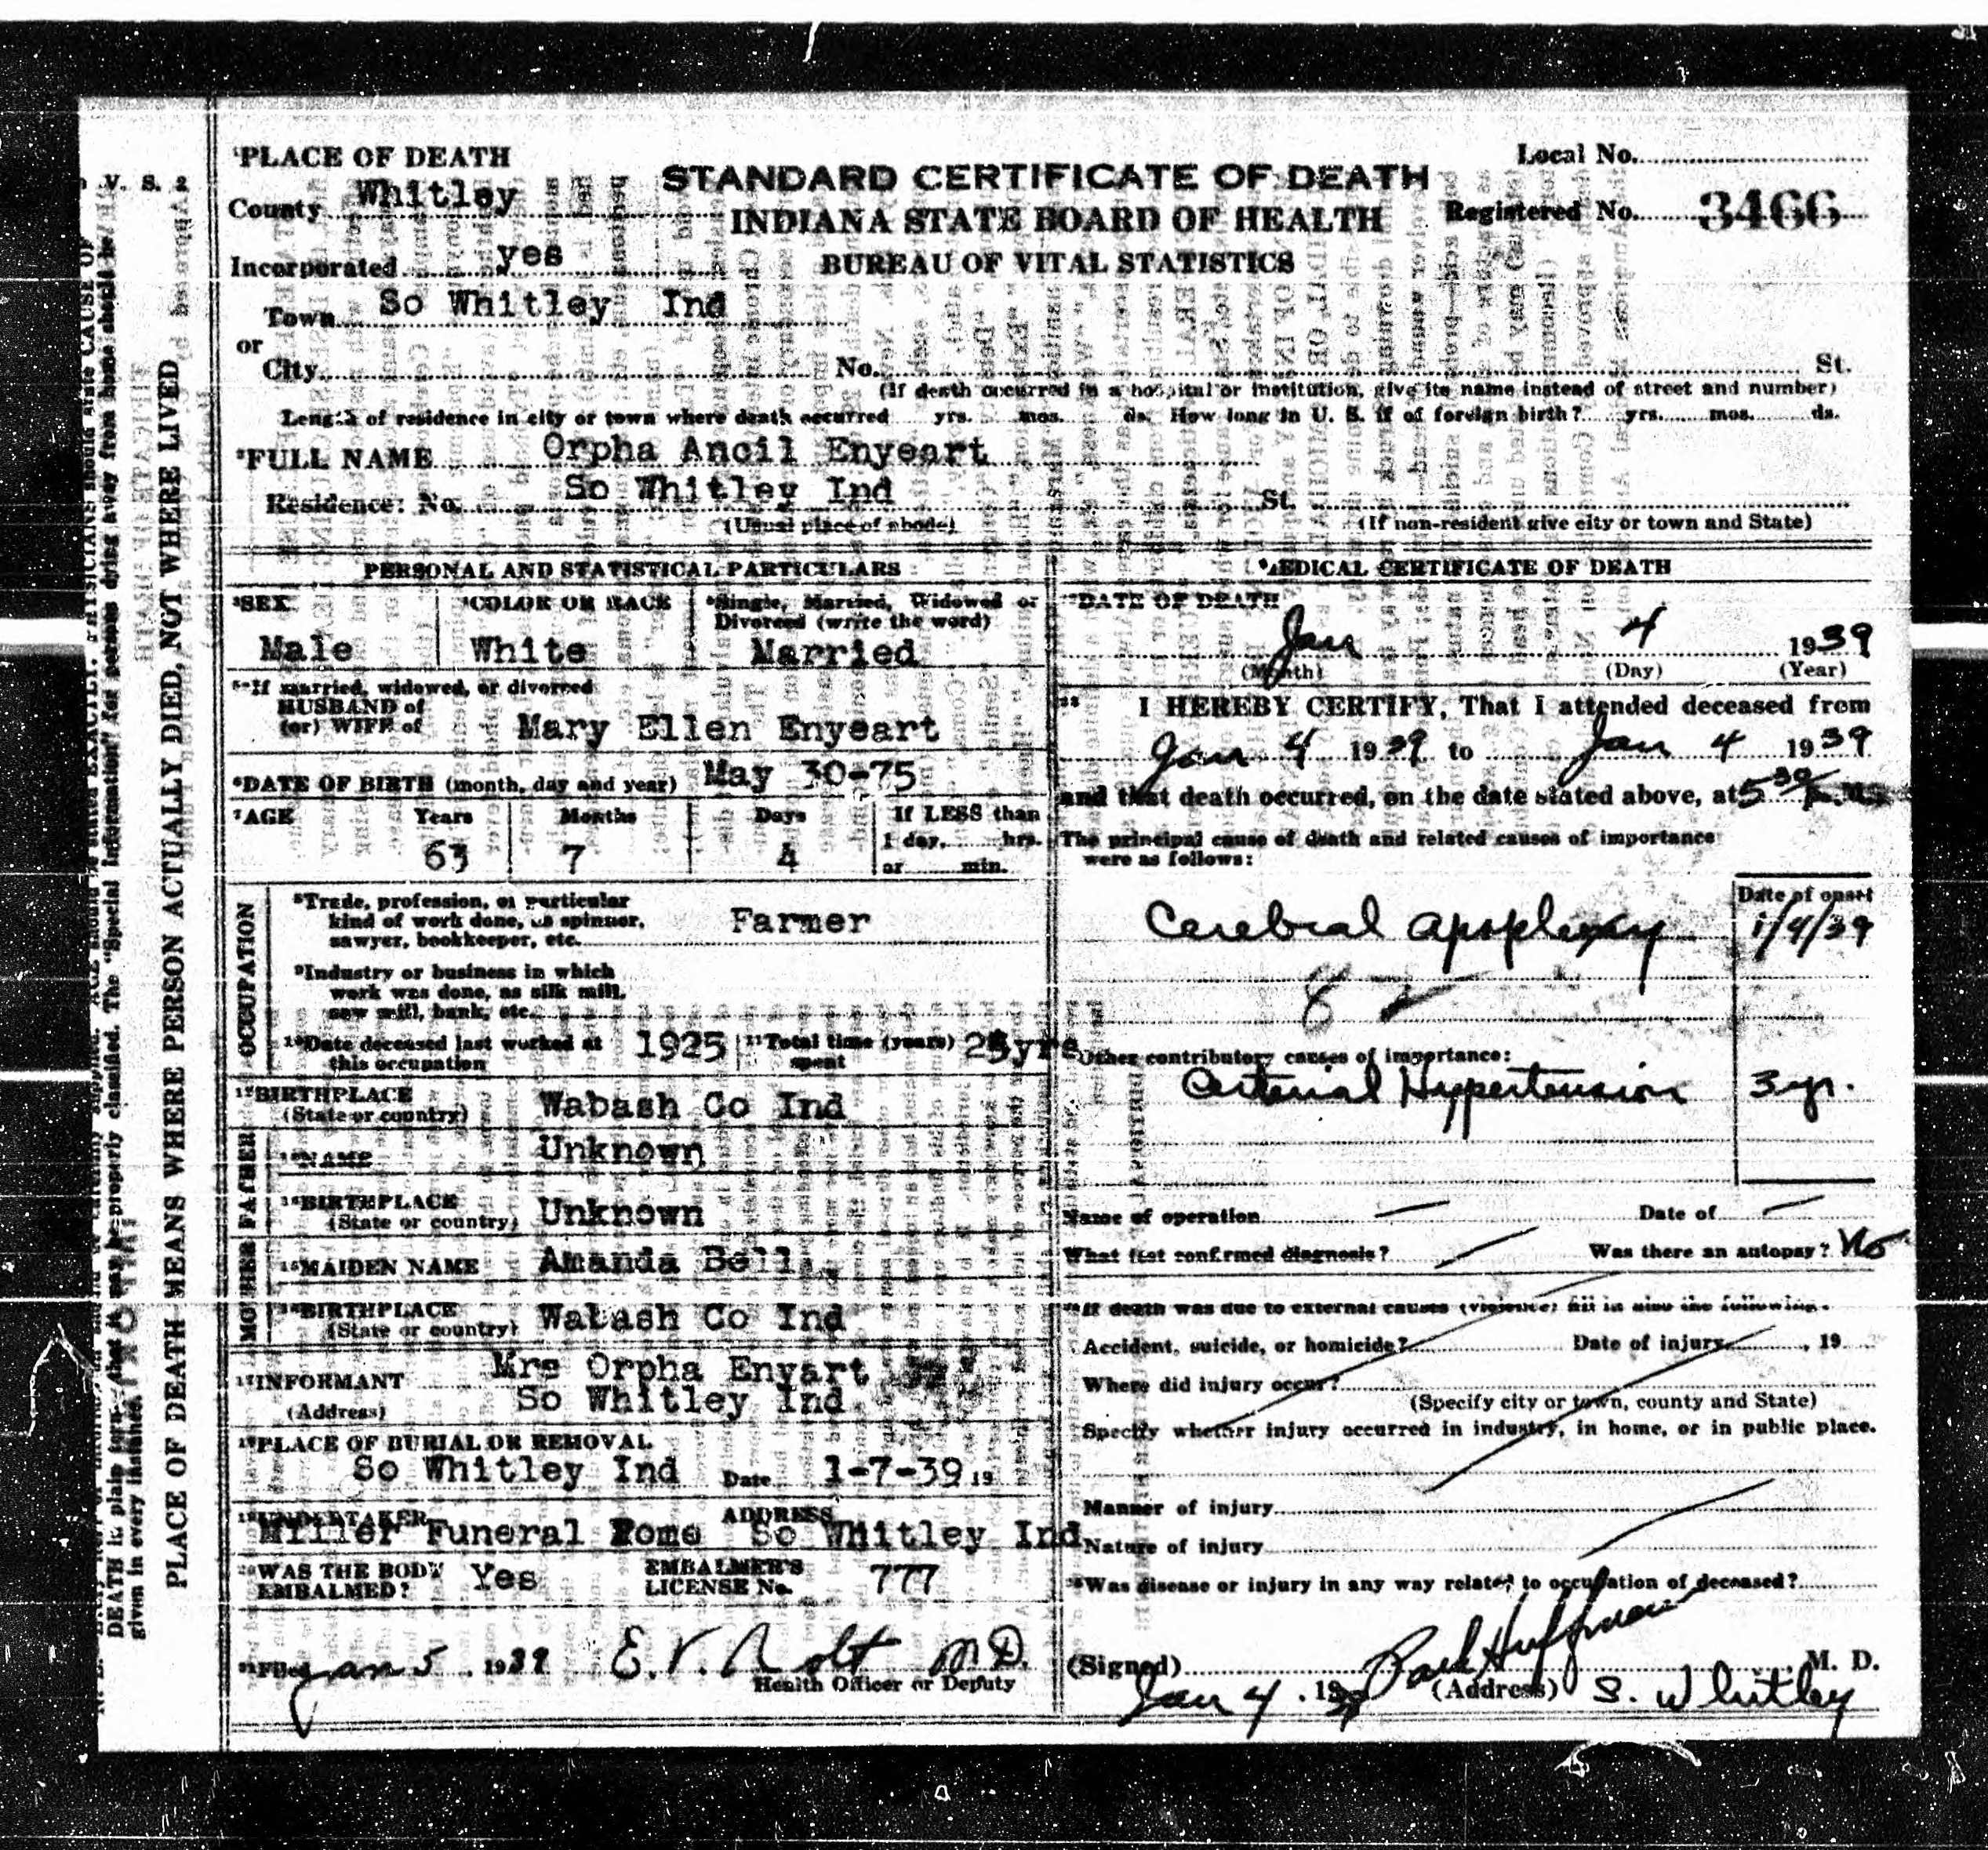 V. S. 2
PLACE OF DEATH MEANS WHERE PERSON ACTUALLY DIED, NOT WHERE LIVED
¹PLACE OF DEATH
County Whitley
Incorporated yes
Town So Whitley Ind
or
City No. St.
(If death occurred in a hospital or institution, give its name instead of street and number)
STANDARD CERTIFICATE OF DEATH
INDIANA STATE BOARD OF HEALTH
BUREAU OF VITAL STATISTICS
Local No.
Registered No. 3466
Length of residence in city or town where death occurred yrs. mos. ds. How long in U. S. if of foreign birth? yrs. mos. ds.
²FULL NAME Orpha Ancil Enyeart
Residence: No. So Whitley Ind St.
(Usual place of abode) (If non-resident give city or town and State)
PERSONAL AND STATISTICAL PARTICULARS
³SEX Male
⁴COLOR OR RACE White
⁵Single, Married, Widowed or Divorced (write the word) Married
If married, widowed, or divorced
HUSBAND of
(or) WIFE of Mary Ellen Enyeart
⁶DATE OF BIRTH (month, day and year) May 30-75
⁷AGE Years Months Days If LESS than
63 7 4 1 day, hrs.
or min.
OCCUPATION
⁸Trade, profession, or particular
kind of work done, as spinner, Farmer
sawyer, bookkeeper, etc.
⁹Industry or business in which
work was done, as silk mill,
saw mill, bank, etc.
¹⁰Date deceased last worked at 1925 ¹¹Total time (years) yrs
this occupation spent
¹²BIRTHPLACE Wabash Co Ind
(State or country)
FATHER
¹³NAME Unknown
¹⁴BIRTHPLACE Unknown
(State or country)
MOTHER
¹⁵MAIDEN NAME Amanda Bell
¹⁶BIRTHPLACE Wabash Co Ind
(State or country)
¹⁷INFORMANT Mrs Orpha Enyart
(Address) So Whitley Ind
¹⁸PLACE OF BURIAL OR REMOVAL
So Whitley Ind Date 1-7-39 19
¹⁹UNDERTAKER ADDRESS
Miller Funeral Home So Whitley Ind
²⁰WAS THE BODY Yes EMBALMER'S 777
EMBALMED? LICENSE No.
²¹Filed Jan 5, 1939 E. V. Nolt M.D.
Health Officer or Deputy
MEDICAL CERTIFICATE OF DEATH
DATE OF DEATH
Jan 4 1939
(Month) (Day) (Year)
I HEREBY CERTIFY, That I attended deceased from
Jan 4 1939 to Jan 4 1939
and that death occurred, on the date stated above, at 5 30 M.
The principal cause of death and related causes of importance
were as follows: Date of onset
Cerebral apoplexy 1/4/39
Other contributory causes of importance:
Arterial Hypertension 3 yr.
Name of operation — Date of —
What test confirmed diagnosis? — Was there an autopsy? No
If death was due to external causes (violence) fill in also the following.
Accident, suicide, or homicide? Date of injury , 19
Where did injury occur?
(Specify city or town, county and State)
Specify whether injury occurred in industry, in home, or in public place.
Manner of injury
Nature of injury
Was disease or injury in any way related to occupation of deceased?
(Signed) Huffman M. D.
Jan 4, 19 (Address) S. Whitley